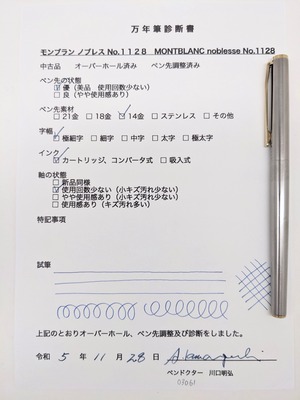 万年筆診断書
モンブラン ノブレス No.1128 MONTBLANC noblesse No.1128
中古品 オーバーホール済み ペン先調整済み
ペン先の状態
☑優（美品 使用回数少ない）
□良（やや使用感あり）
ペン先素材
□21金 □18金 ☑14金 □ステンレス □その他
字幅
☑極細字 □細字 □中字 □太字 □極太字
インク
☑カートリッジ、コンバータ式 □吸入式
軸の状態
□新品同様
☑使用回数少ない（小キズ汚れ少ない）
□やや使用感あり（小キズ汚れ少ない）
□使用感あり（キズ汚れ多い）
特記事項
試筆
上記のとおりオーバーホール、ペン先調整及び診断をしました。
令和 5年 11月 28日
ペンドクター 川口明弘
03061